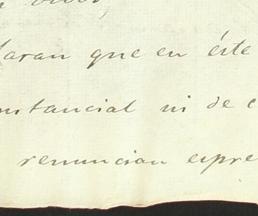 laran que en éste
nstancial ni de c
renuncian expre